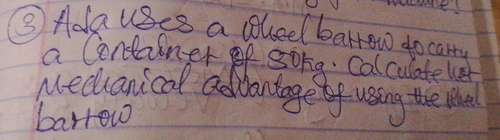 ③ Ada uses a wheel barrow to carry
a Container of 80kg. Calculate her
Mechanical advantage of using the wheel
barrow